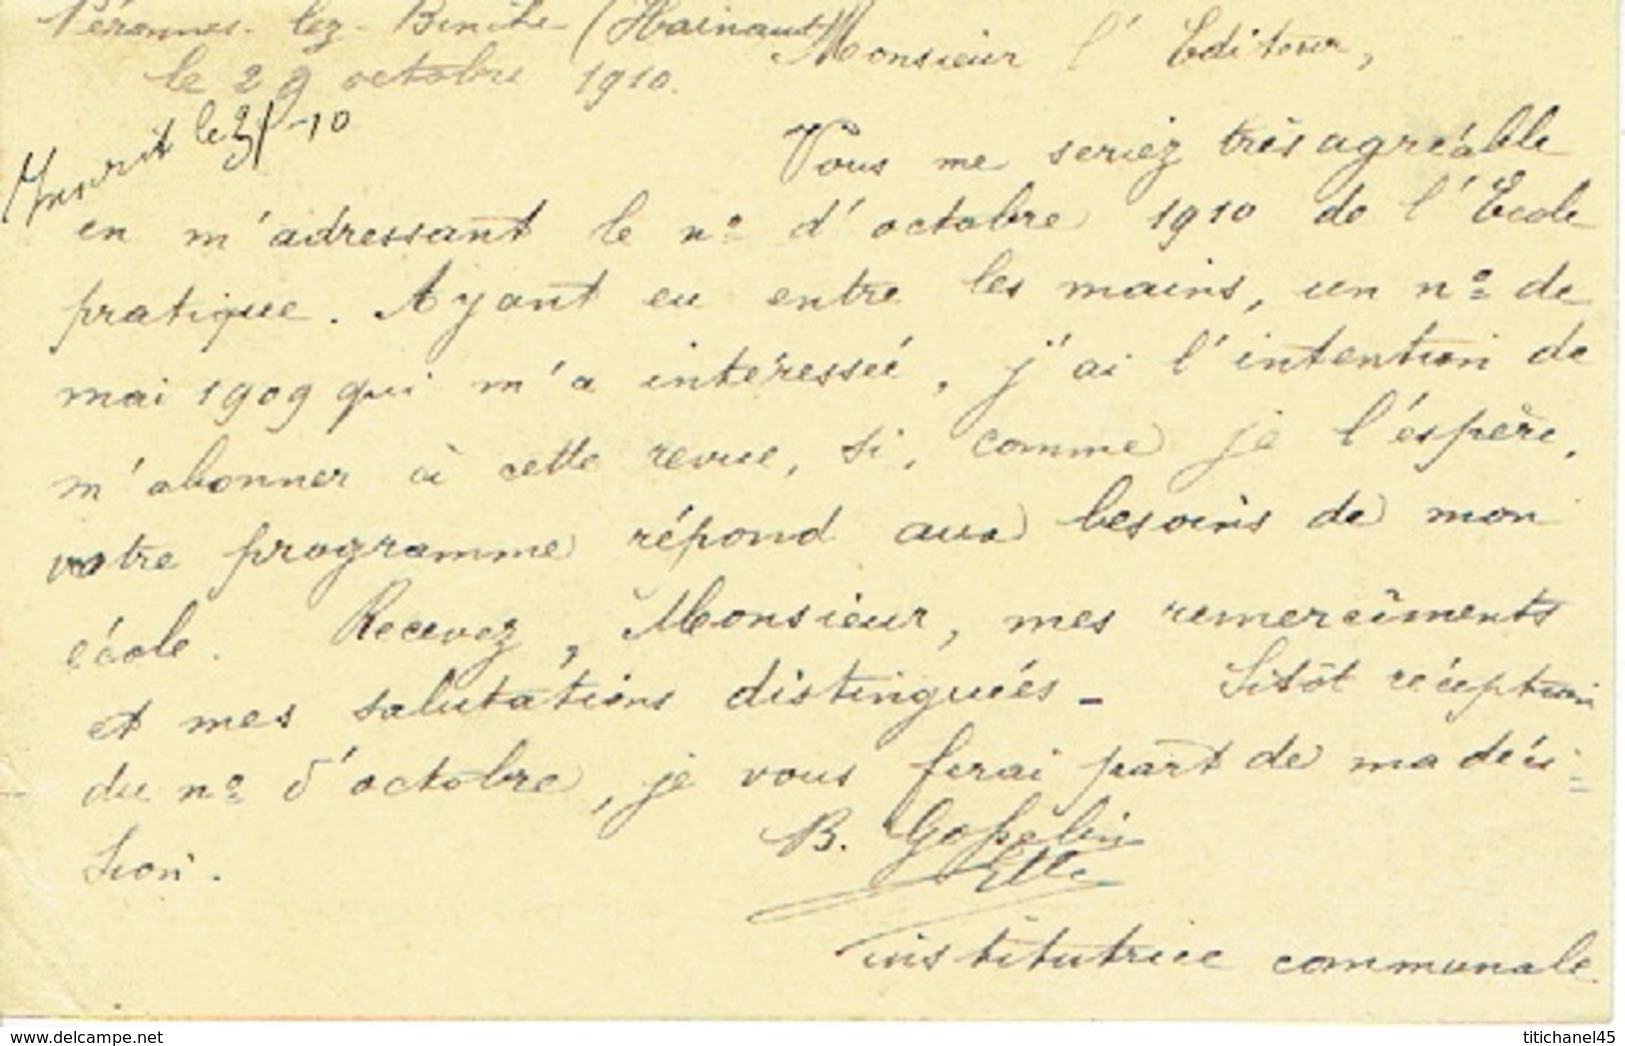 Péronnes-lez-Binche (Hainaut)
le 29 octobre 1910.
Monsieur l'Editeur,
Inscrit le 31-10
Vous me seriez très agréable
en m'adressant le nº d'octobre 1910 de l'École
pratique. Ayant eu entre les mains, un nº de
mai 1909 qui m'a intéressée, j'ai l'intention de
m'abonner à cette revue, si, comme je l'espère,
votre programme répond aux besoins de mon
école. Recevez, Monsieur, mes remercîments
et mes salutations distinguées - Sitôt réception
du nº d'octobre, je vous ferai part de ma déci-
sion.
B. Gosselin
institutrice communale.
www.delcampe.net
titichanel45